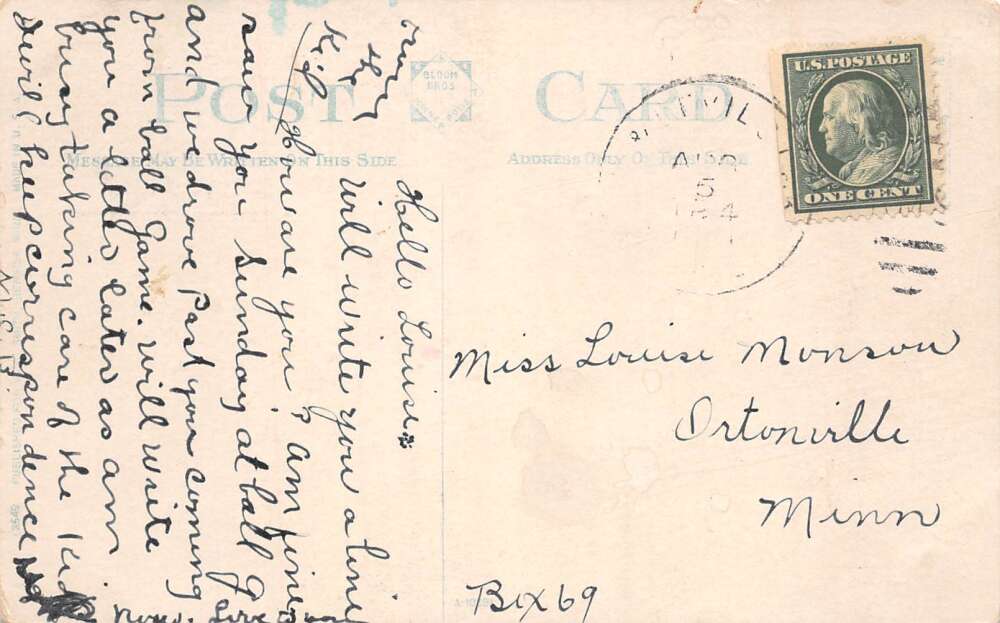 POST CARD
BLOOM BROS
MESSAGE MAY BE WRITTEN ON THIS SIDE
ADDRESS ONLY ON THIS SIDE
U.S. POSTAGE
ONE CENT
5
Miss Louise Monson
Ortonville
Minn
Box 69
Hello Louise
Will write you a line
How are you? am fine
saw you Sunday at ball G
and we drove Past you coming
from ball Game. will write
you a letter later as am
busy taking care of the Kid
will keep corrispondence
now. Love